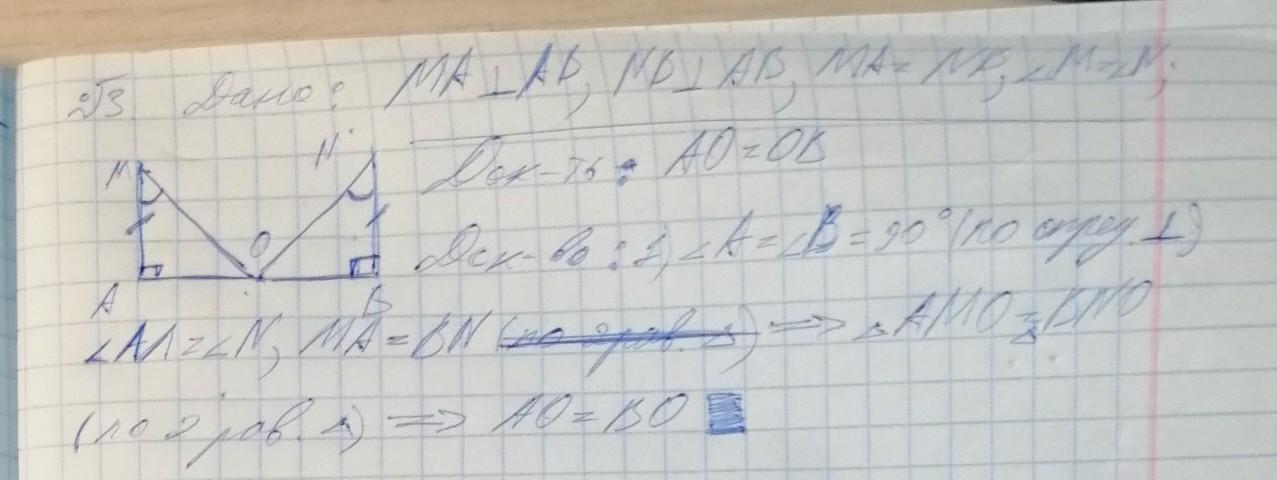 №3 Дано: MA⊥AB, NB⊥AB, MA=NB, ∠M=∠N;
Док-ть: AO=OB
M N
O
A B
Док-во: 1) ∠A=∠B=90° (по опред. ⊥)
∠M=∠N, MA=BN ⟹ △AMO=△BNO
(по 2 рав. △) ⟹ AO=BO